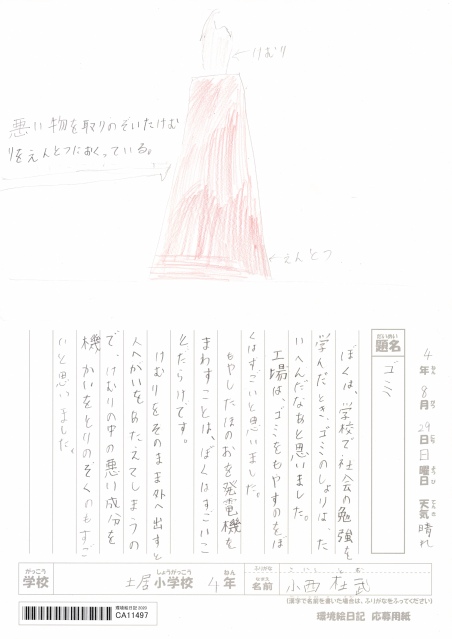 けむり
悪い物を取りのぞいたけむ
りをえんとつにおくっている。
えんとつ
4年8月29日日曜日 天気晴れ
だいめい
題名
ゴミ
ぼくは、学校で社会の勉強を
学んだとき、ゴミのしょりは、た
いへんだなあと思いました。
工場は、ゴミをもやすのをぼ
くはすごいと思いました。
もやしたほのおを発電機を
まわすことは、ぼくはすごいこ
とだらけです。
けむりをそのまま外へ出すと
人へがいをあたえてしまうの
で、けむりの中の悪い成分を
機かいをとりのぞくのもすご
いと思いました。
がっこう
学校
土居
しょうがっこう
小学校
4
ねん
年
ふりがな
名前
小西
武
(漢字で名前を書いた場合は、ふりがなをふってください)
環境絵日記 2020
CA11497
環境絵日記 応募用紙